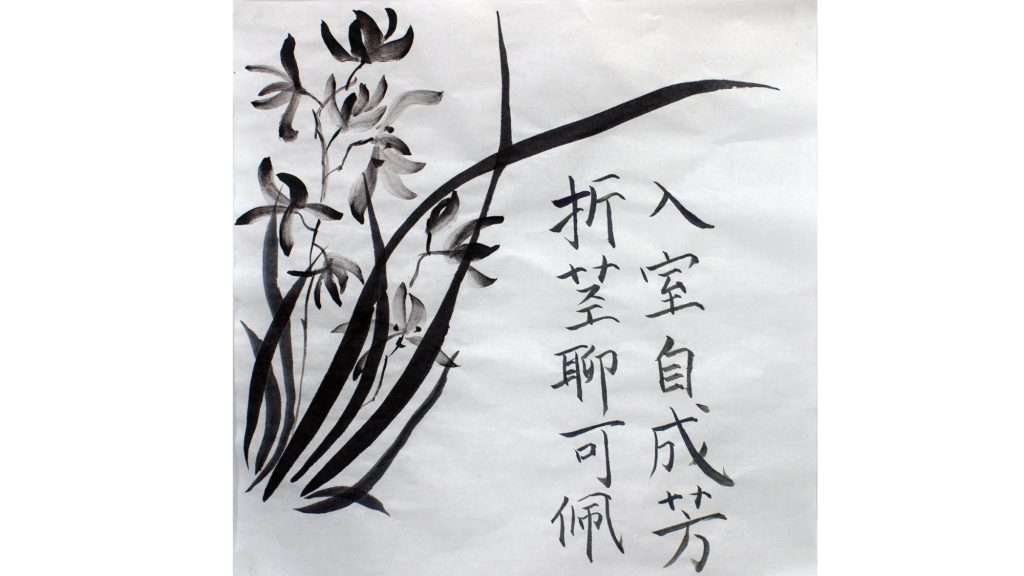 入室自成芳
折茎聊可佩